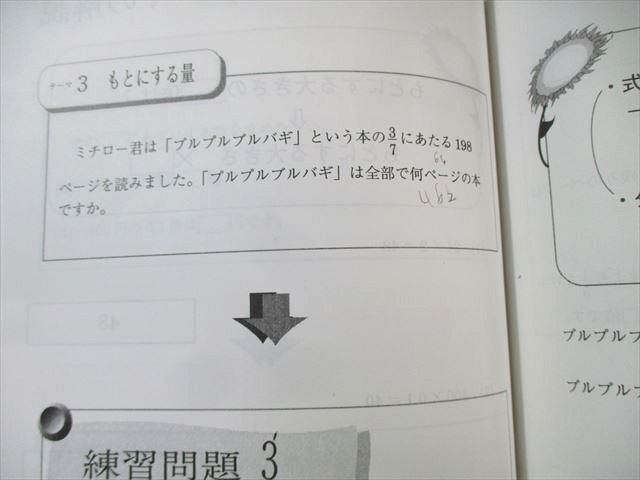 テーマ 3 もとにする量
ミチロー君は「ブルブルブルバギ」という本の3/7にあたる198
66
ページを読みました。「ブルブルブルバギ」は全部で何ページの本
462
ですか。
練習問題 3
・式
ブルブルブ
ブルブルブ